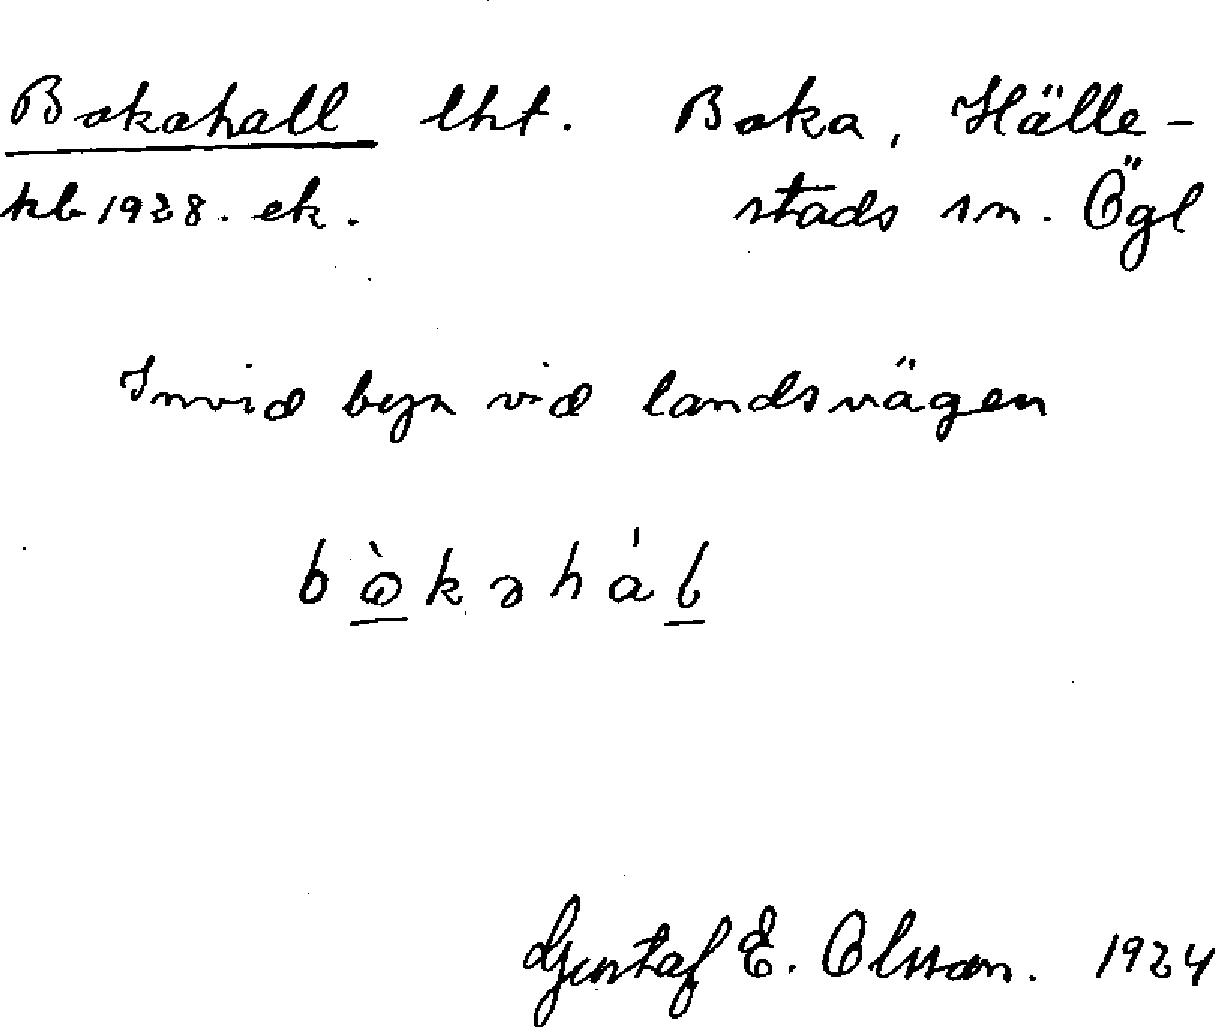 Bokahall lht. Boka, Hälle-
kb 1928. ek. stads sn. Ögl
Invid byn vid landsvägen
Gustaf E. Olsson. 1924